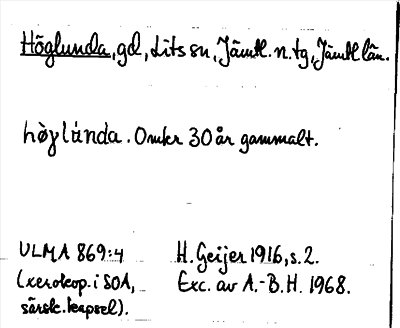 Höglunda, gd, Lits sn, Jämtl. n. tg, Jämtl län.
hòγlúnda. Omkr 30 år gammalt.
ULMA 869:4 H. Geijer 1916, s. 2.
(xerokop. i SOA, Exc. av A.-B. H. 1968.
särsk. kapsel).